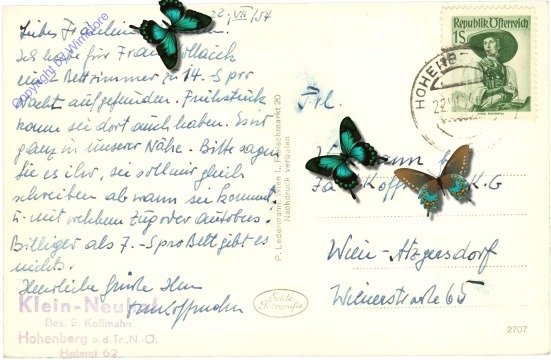 2. VII /54
Liebes Fräulein
Ich habe für Frau
ein Bettzimmer zu 14.- S pro
Nacht aufgefunden. Frühstück
kann sie dort auch haben. Es ist
ganz in unserer Nähe. Bitte sagen
Sie es ihr, sie soll mir gleich
schreiben ab wann sie kommt
u. mit welchem Zug oder Autobus.
Billiger als 7.- S pro Bett gibt es
nichts.
Herzliche Grüße Ihre
Klein-Neukel
Bes. E. Kollmann
Hohenberg a.d.Tr., N.-Ö.
Hofamt 62
Copyright by Winstore
P. Ledermann, Wien I., Fleischmarkt 20
Nachdruck verboten
Echte
Fotografie
Republik Österreich
1S
HOHENB
Frl.
K.G
Wien-Atzgersdorf
Wienerstraße 65
2707